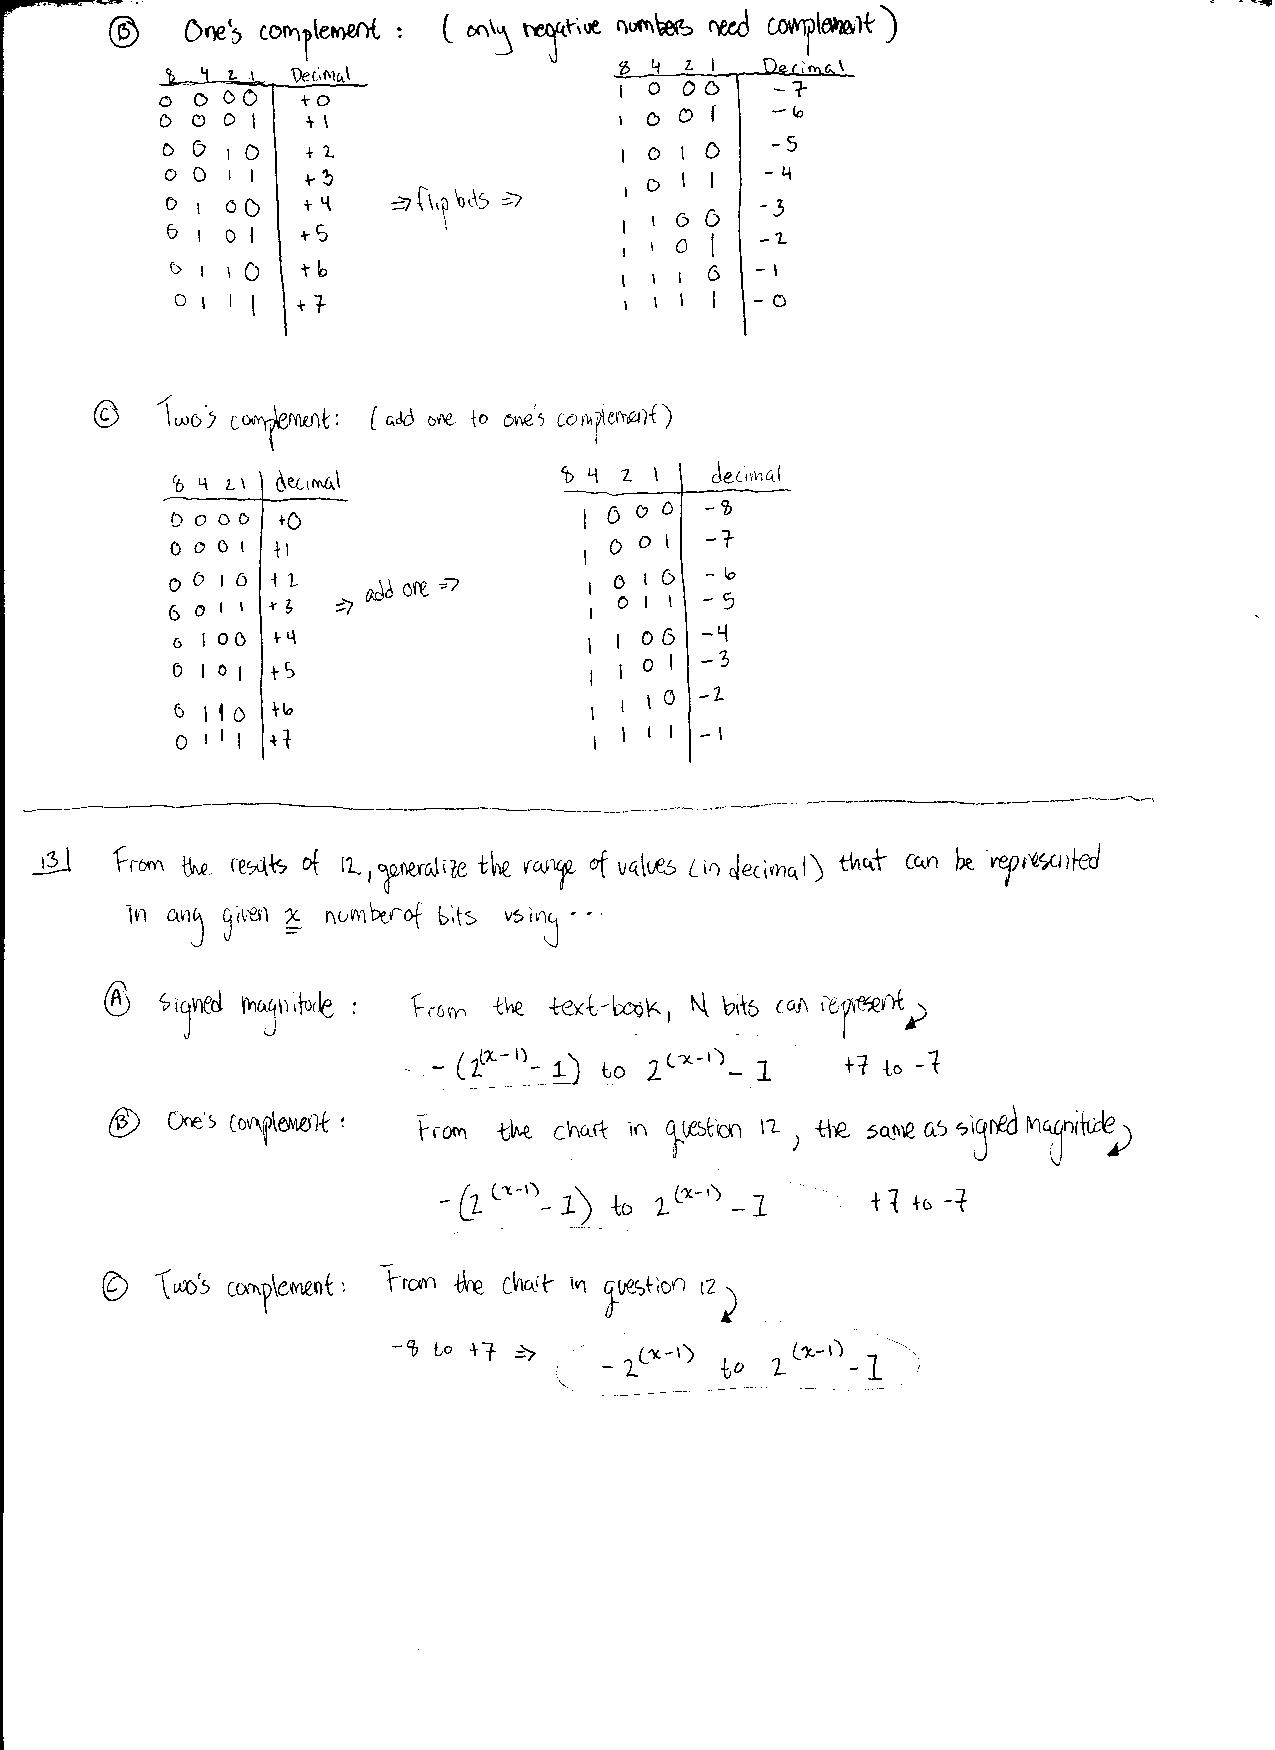 B One's complement : ( only negative numbers need complement )
8 4 2 1 Decimal
0 0 0 0 +0
0 0 0 1 +1
0 0 1 0 +2
0 0 1 1 +3
0 1 0 0 +4
0 1 0 1 +5
0 1 1 0 +6
0 1 1 1 +7
⇒ flip bits ⇒
8 4 2 1 Decimal
1 0 0 0 -7
1 0 0 1 -6
1 0 1 0 -5
1 0 1 1 -4
1 1 0 0 -3
1 1 0 1 -2
1 1 1 0 -1
1 1 1 1 -0
C Two's complement: (add one to one's complement)
8 4 2 1 decimal
0 0 0 0 +0
0 0 0 1 +1
0 0 1 0 +2
0 0 1 1 +3
0 1 0 0 +4
0 1 0 1 +5
0 1 1 0 +6
0 1 1 1 +7
⇒ add one ⇒
8 4 2 1 decimal
1 0 0 0 -8
1 0 0 1 -7
1 0 1 0 -6
1 0 1 1 -5
1 1 0 0 -4
1 1 0 1 -3
1 1 1 0 -2
1 1 1 1 -1
13) From the results of 12, generalize the range of values (in decimal) that can be represented
in any given x number of bits using ...
A Signed magnitude : From the text-book, N bits can represent
-(2^(x-1) - 1) to 2^(x-1) - 1 +7 to -7
B One's complement : From the chart in question 12, the same as signed magnitude
-(2^(x-1) - 1) to 2^(x-1) - 1 +7 to -7
C Two's complement: From the chart in question 12
-8 to +7 ⇒ -2^(x-1) to 2^(x-1) - 1